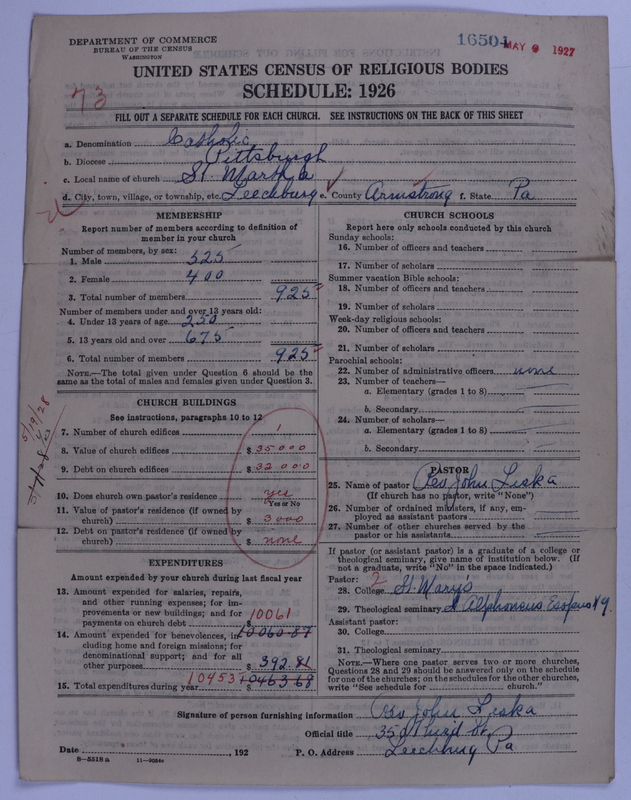 DEPARTMENT OF COMMERCE
BUREAU OF THE CENSUS
WASHINGTON
16501 MAY 9 1927
UNITED STATES CENSUS OF RELIGIOUS BODIES
SCHEDULE: 1926
73
FILL OUT A SEPARATE SCHEDULE FOR EACH CHURCH. SEE INSTRUCTIONS ON THE BACK OF THIS SHEET
a. Denomination Catholic
b. Diocese Pittsburgh
c. Local name of church St. Martha
d. City, town, village, or township, etc. Leechburg e. County Armstrong f. State Pa
MEMBERSHIP
Report number of members according to definition of
member in your church
Number of members, by sex:
1. Male 525
2. Female 400
3. Total number of members 925
Number of members under and over 13 years old:
4. Under 13 years of age 250
5. 13 years old and over 675
6. Total number of members 925
NOTE.—The total given under Question 6 should be the
same as the total of males and females given under Question 3.
CHURCH BUILDINGS
See instructions, paragraphs 10 to 12
7. Number of church edifices 1
8. Value of church edifices $ 35000
9. Debt on church edifices $ 32000
10. Does church own pastor's residence yes
Yes or No
11. Value of pastor's residence (if owned by
church) $ 3000
12. Debt on pastor's residence (if owned by
church) $ none
5/19/28
EXPENDITURES
Amount expended by your church during last fiscal year
13. Amount expended for salaries, repairs,
and other running expenses; for im-
provements or new buildings; and for
payments on church debt $ 10061
10060 87
14. Amount expended for benevolences, in-
cluding home and foreign missions; for
denominational support; and for all
other purposes $ 392.81
15. Total expenditures during year $ 10453 10453 68
CHURCH SCHOOLS
Report here only schools conducted by this church
Sunday schools:
16. Number of officers and teachers
17. Number of scholars
Summer vacation Bible schools:
18. Number of officers and teachers
19. Number of scholars
Week-day religious schools:
20. Number of officers and teachers
21. Number of scholars
Parochial schools:
22. Number of administrative officers none
23. Number of teachers—
a. Elementary (grades 1 to 8)
b. Secondary
24. Number of scholars—
a. Elementary (grades 1 to 8)
b. Secondary
PASTOR
25. Name of pastor Rev John Liska
(If church has no pastor, write "None")
26. Number of ordained ministers, if any, em-
ployed as assistant pastors
27. Number of other churches served by the
pastor or his assistants
If pastor (or assistant pastor) is a graduate of a college or
theological seminary, give name of institution below. (If
not a graduate, write "No" in the space indicated.)
Pastor: 2
28. College St. Mary's
29. Theological seminary St Alphonsus Esopus N.Y.
Assistant pastor:
30. College
31. Theological seminary
NOTE.—Where one pastor serves two or more churches,
Questions 28 and 29 should be answered only on the schedule
for one of the churches; on the schedules for the other churches,
write "See schedule for church."
Signature of person furnishing information Rev John Liska
Official title 350 Third St.
Date , 192 P. O. Address Leechburg Pa
8—5518a 11—9054a